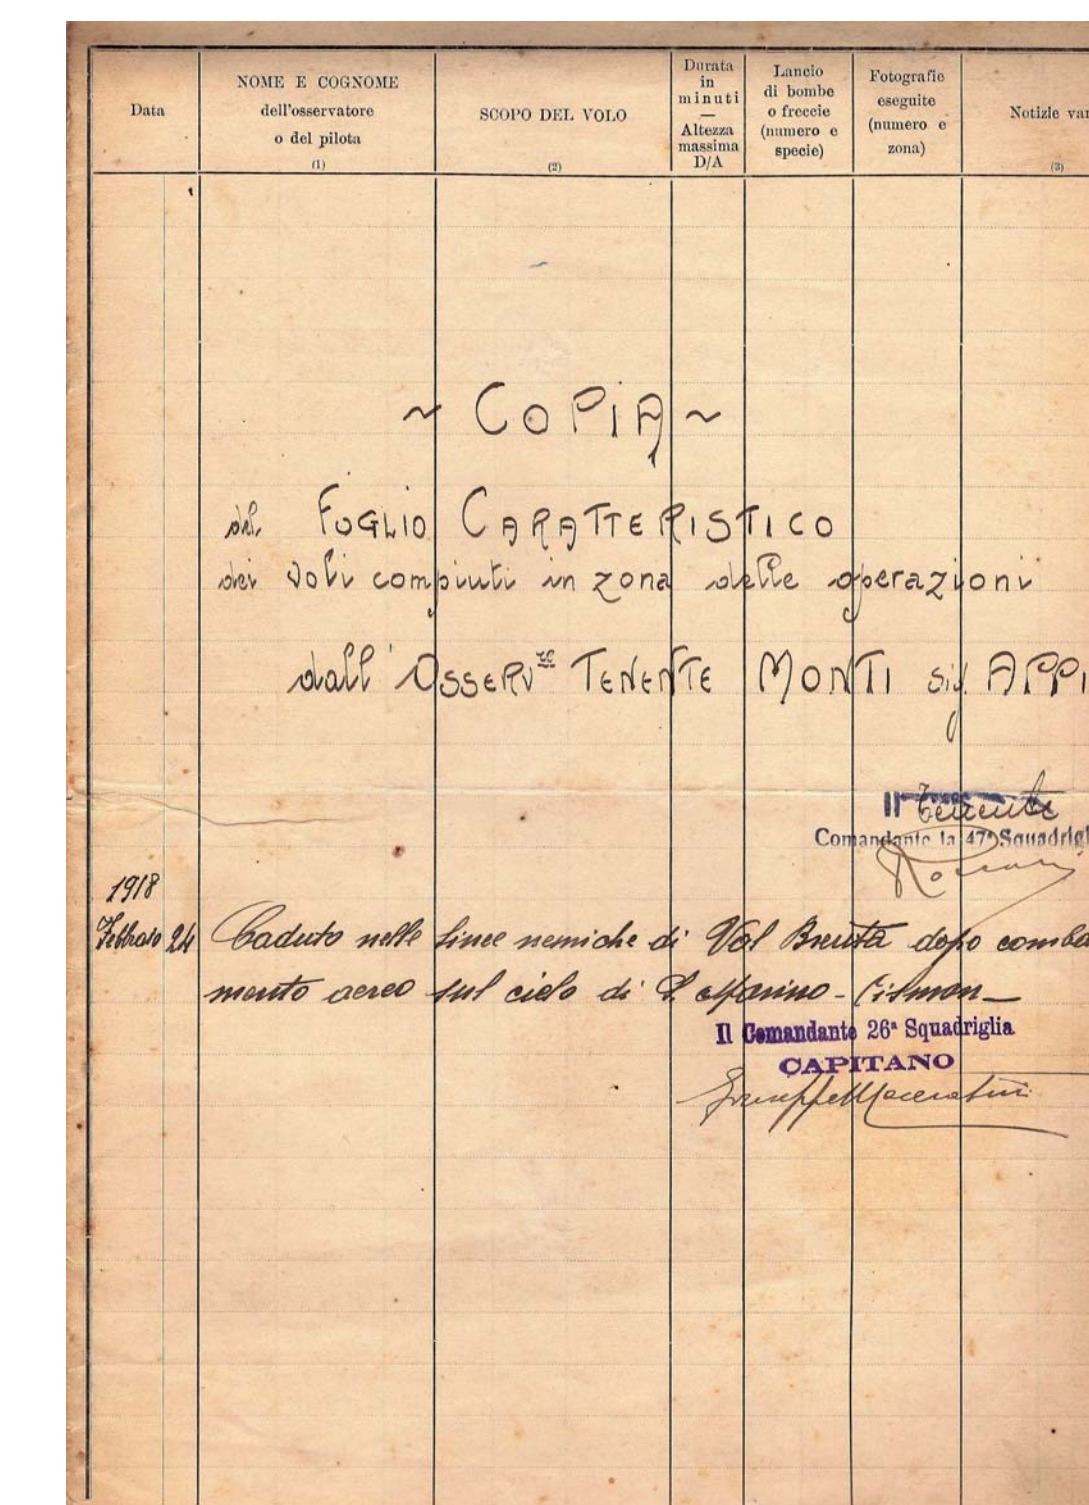 Data
NOME E COGNOME
dell'osservatore
o del pilota
(1)
SCOPO DEL VOLO
(2)
Durata
in
minuti
—
Altezza
massima
D/A
Lancio
di bombe
o freccie
(numero e
specie)
Fotografie
eseguite
(numero e
zona)
Notizie var
(3)
~ COPIA ~
del FOGLIO CARATTERISTICO
dei voli compiuti in zona delle operazioni
dall'OSSERVre TENENTE MONTI sig. APPI
Il Tenente
Comandante la 47a Squadrigl
1918
Febbraio 24 Caduto nelle linee nemiche di Val Brenta dopo comba
mento aereo sul cielo di S. Marino - Cismon -
Il Comandante 26a Squadriglia
CAPITANO
Giuseppe Maceratini